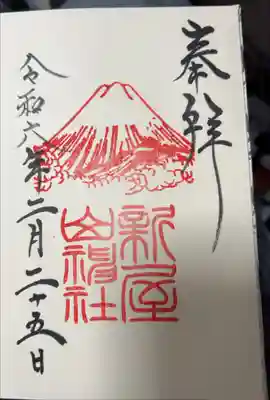 奉拝
新屋
山神社
令和六年二月二十五日